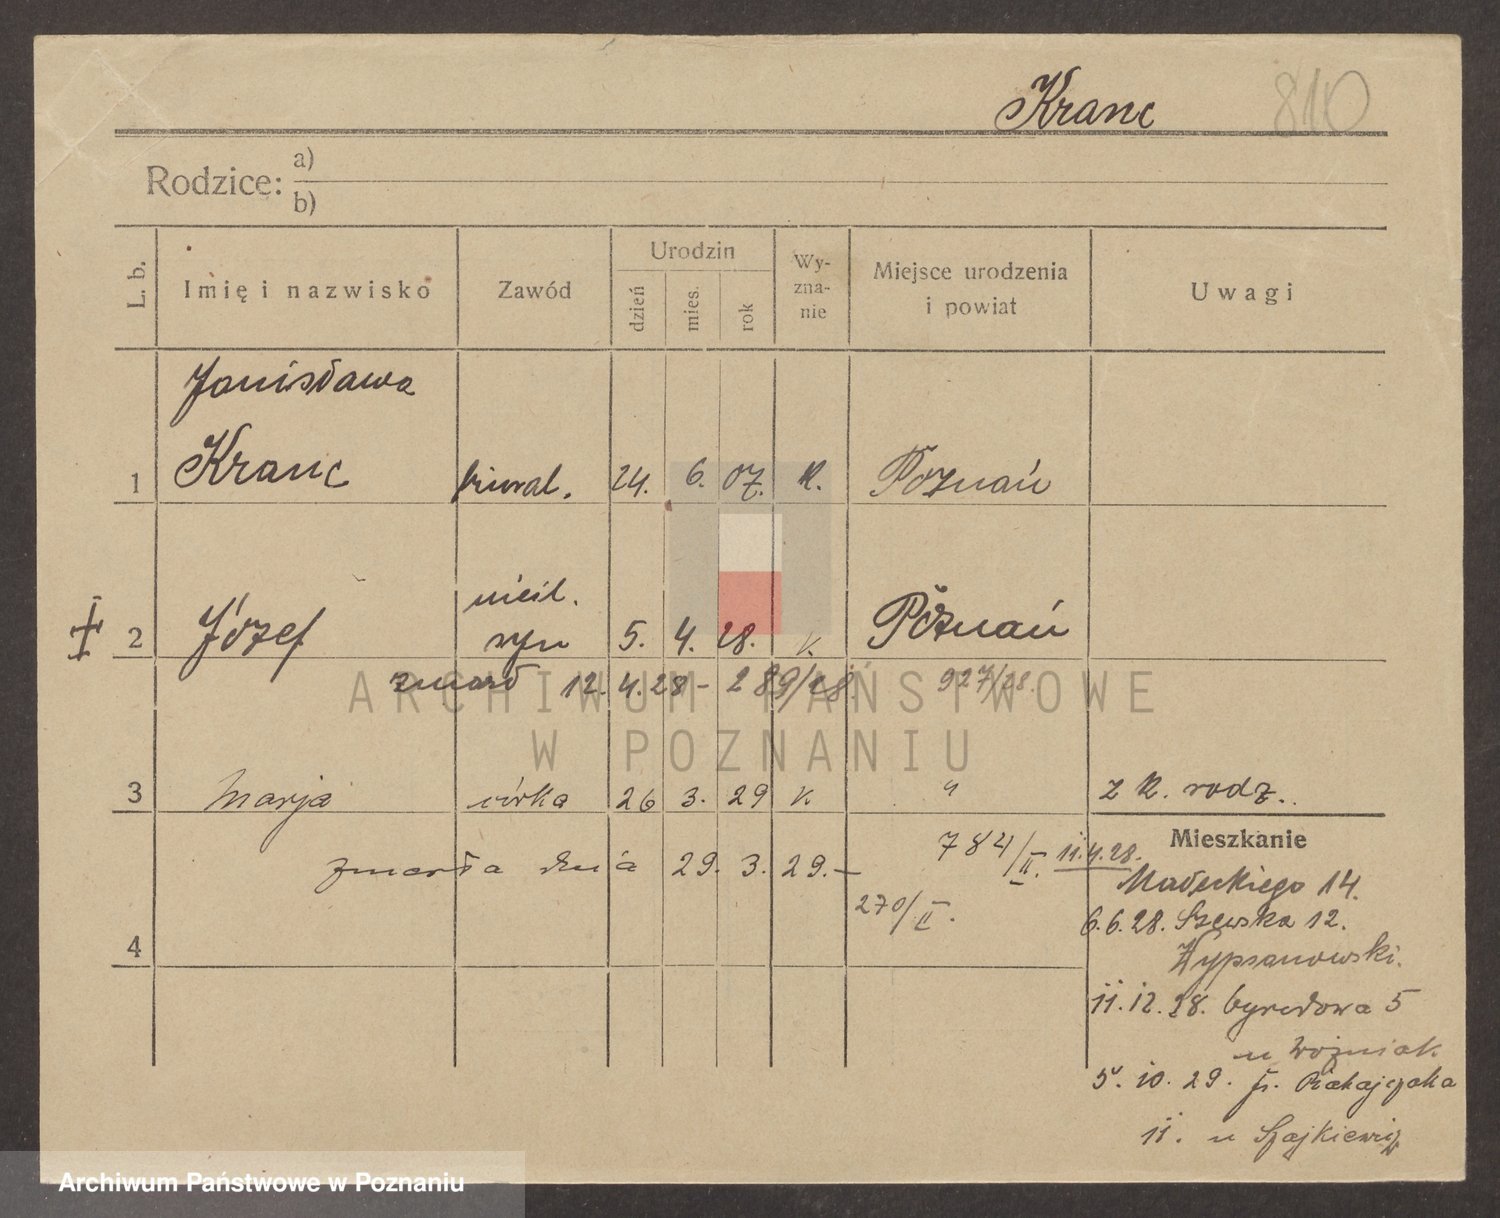 Kranc 810
Rodzice: a)
b)
L. b. Imię i nazwisko Zawód Urodzin dzień mies. rok Wy-zna-nie Miejsce urodzenia i powiat Uwagi
Janisława
1 Kranc biural. 24. 6. 07. R. Poznań
nieśl.
2 Józef syn 5. 4. 28. k. Poznań
zmarł 12. 4. 28 - 289/28 927/28.
3 Marja córka 26 3. 29 k " z R. rodz..
Mieszkanie
784/II. 11.4.28.
zmarła dnia 29. 3. 29.-
Małeckiego 14.
270/II.
6.6.28. Szewska 12.
4
11.12.28. 5
u Woźniak
5. 10. 29. Fr. Ratajczaka
11. u
ARCHIWUM PAŃSTWOWE
W POZNANIU
Archiwum Państwowe w Poznaniu